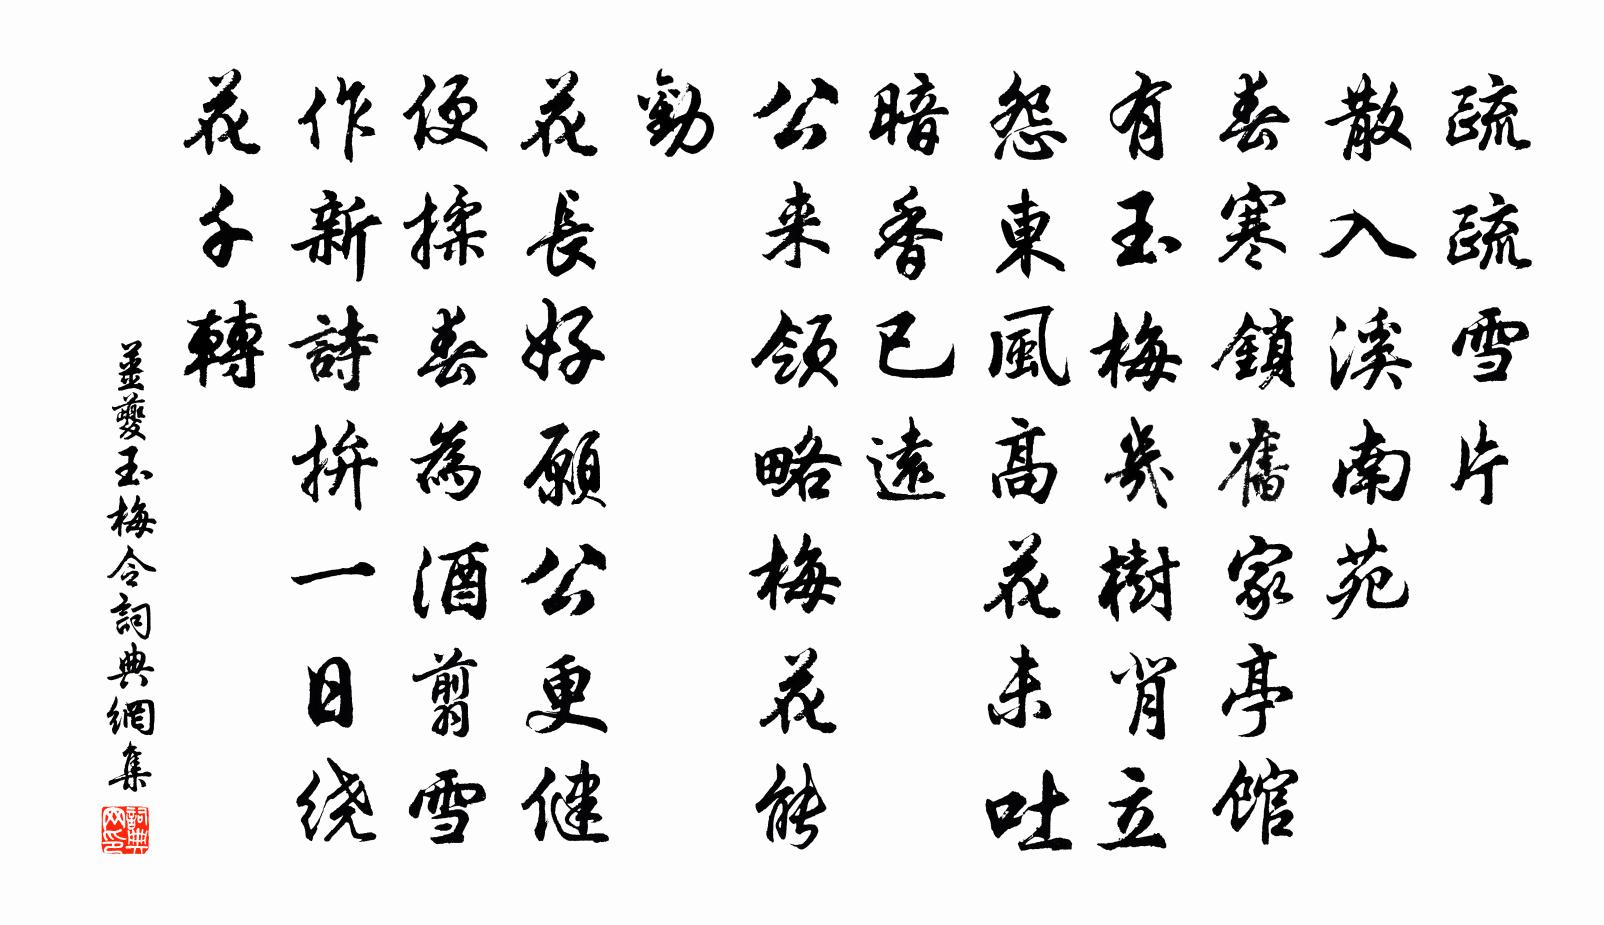 疏疏雪片
散入溪南苑
春寒鎖舊家亭館
有玉梅幾樹背立
怨東風高花未吐
暗香已遠
公来領略梅花能
勸
花長好願公更健
便揉春為酒翦雪
作新詩拚一日绕
花千轉
薑夔玉梅令詞典網集
詞典网印